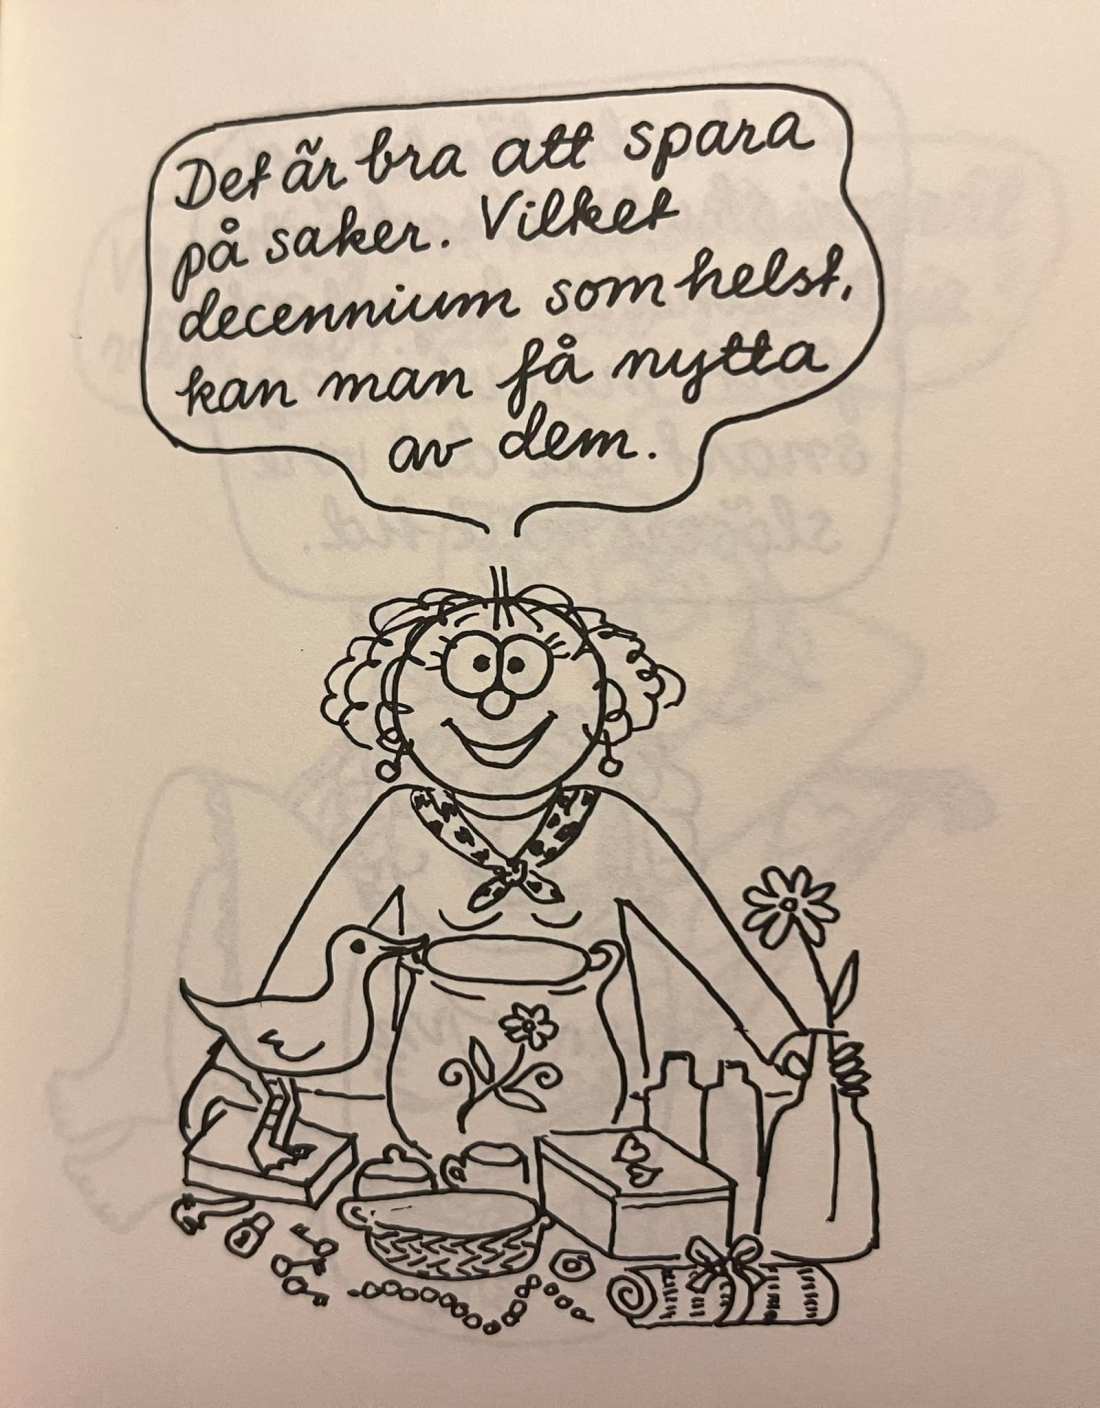 Det är bra att spara
på saker. Vilket
decennium som helst,
kan man få nytta
av dem.